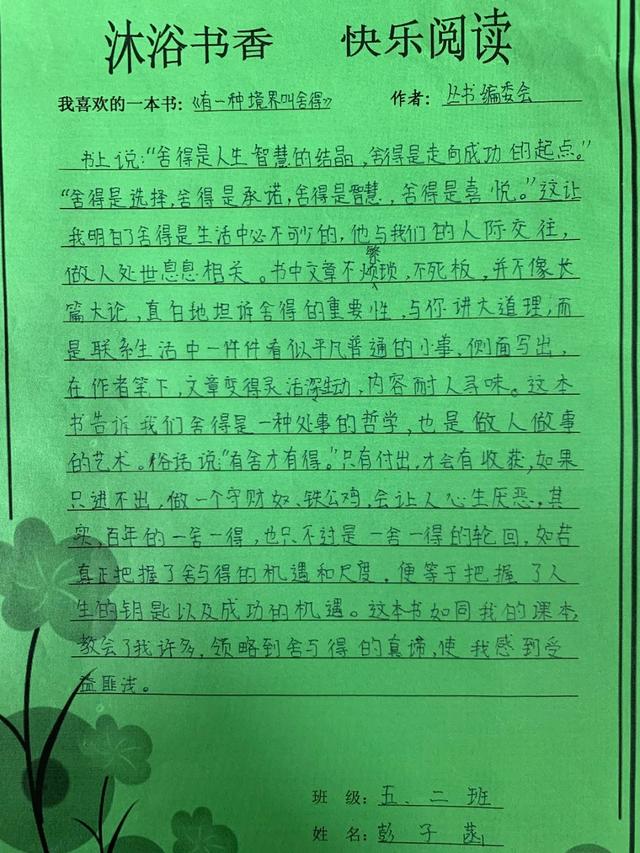 沐浴书香 快乐阅读
我喜欢的一本书:《有一种境界叫舍得》 作者: 丛书编委会
书上说:“舍得是人生智慧的结晶,舍得是走向成功的起点。”
“舍得是选择,舍得是承诺,舍得是智慧,舍得是喜悦。”这让
我明白了舍得是生活中必不可少的,他与我们的人际交往,
做人处世息息相关。书中文章不繁琐,不死板,并不像长
篇大论,直白地坦诉舍得的重要性,与你讲大道理,而
是联系生活中一件件看似平凡普通的小事,侧面写出,
在作者笔下,文章变得灵活深生动,内容耐人寻味。这本
书告诉我们舍得是一种处事的哲学,也是做人做事
的艺术。俗话说“有舍才有得。”只有付出,才会有收获,如果
只进不出,做一个守财奴、铁公鸡,会让人心生厌恶。其
实,百年的一舍一得,也只不过是一舍一得的轮回,如若
真正把握了舍与得的机遇和尺度,便等于把握了人
生的钥匙以及成功的机遇。这本书如同我的课本,
教会了我许多,领略到舍与得的真谛,使我感到受
益匪浅。
班 级: 五、二班
姓 名: 彭子菡